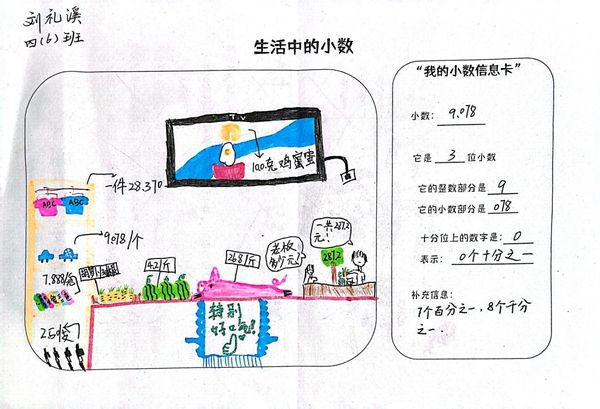 刘礼溪
四(6)班
生活中的小数
TV
100克鸡蜜
一件28.370
ABC
ABC
9.078/个
7.888/
4.2/斤
26.8/斤
老板
多少元?
一共287.2
元!
287.2
特别
好吃!
“我的小数信息卡”
小数: 9.078
它是 3 位小数
它的整数部分是 9
它的小数部分是 078
十分位上的数字是: 0
表示: 0个十分之一
补充信息:
7个百分之一,8个千分
之一.